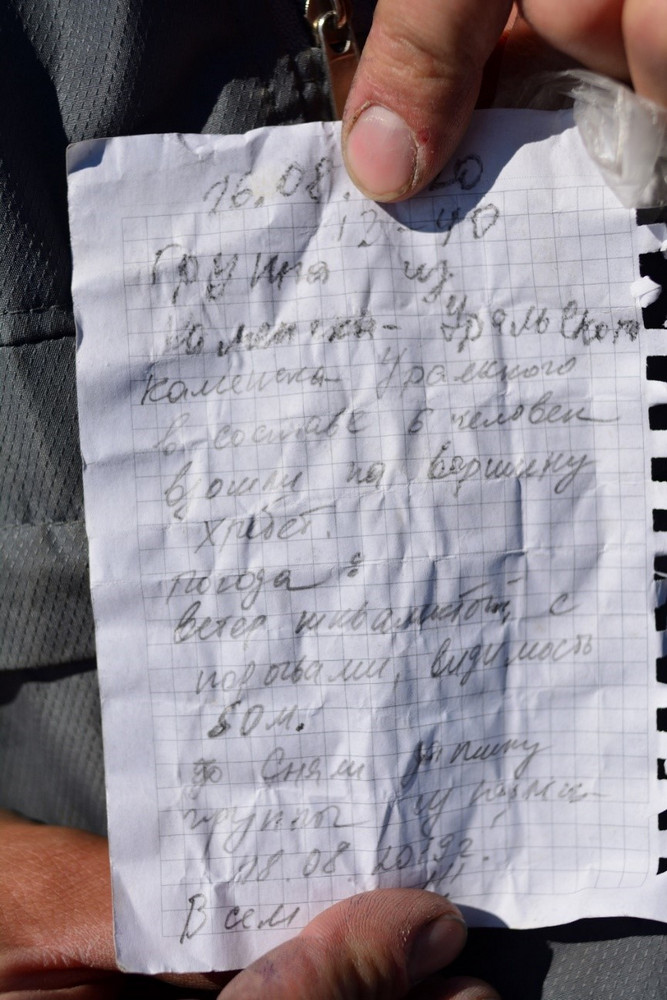 16.08. 20
12-40
Группа из
Каменска-Уральского
Каменска Уральского
в составе 6 человек
взошли на вершину
хребет.
погода:
ветер шквалистый, с
порывами, видимость
50 м.
Сняли записку
группы
18.08.2019г.
Всем